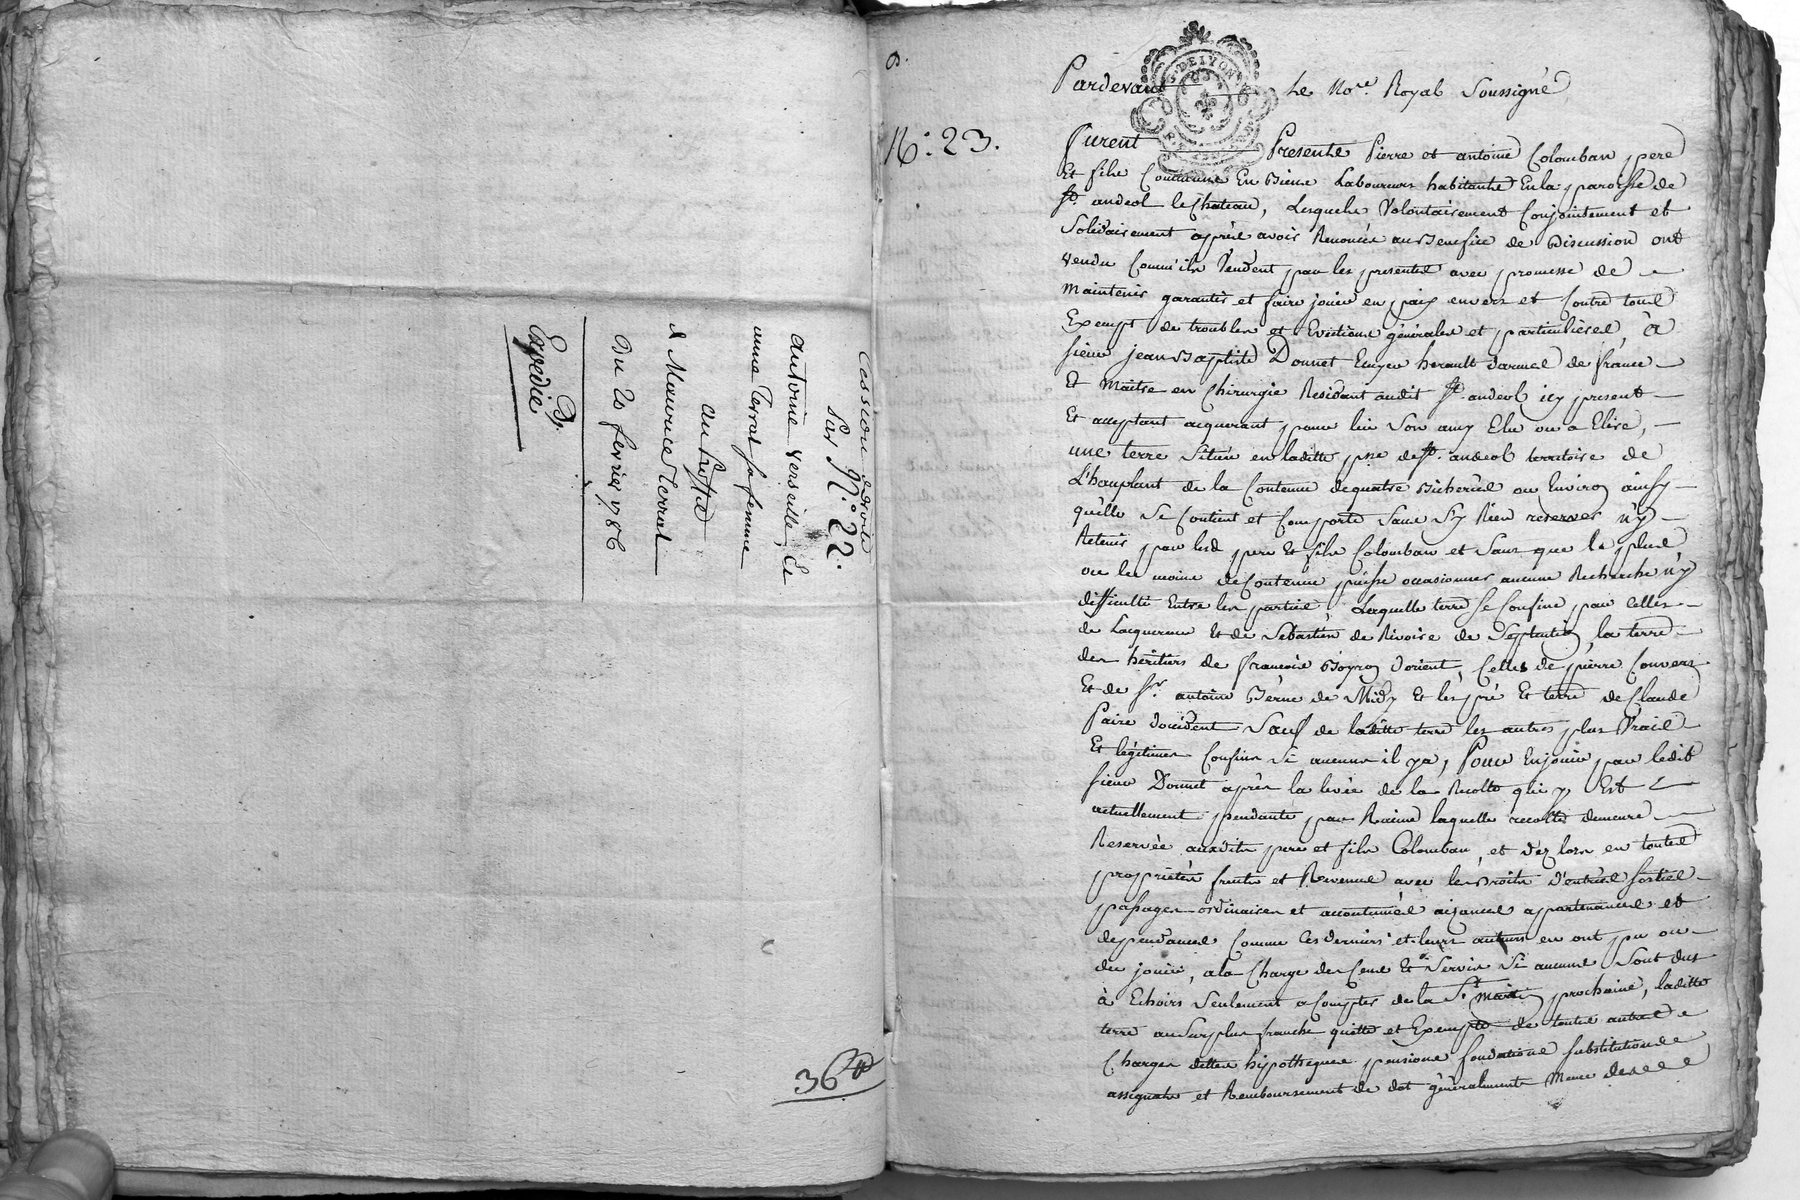 Cession de droits
Par N.° 22.
antoine verseille Et
anne Terrat sa femme
au profit
de Maurice Terrat
Du 20 fevrier 1786
Expedié
36
N.° 23.
Pardevant Le No.re Royal Soussigné
furent Presents Pierre et antoine Colomban pere
Et fils Communs En Biens Laboureurs habitants En la paroisse de
St. andeol le Chateau, Lesquels Volontairement Conjointement et
Solidairement après avoir Renoncés au Benefice de Discussion ont
vendu Comm'ils Vendent par les presentes avec promesse de
maintenir garantir et faire jouir en paix envers et Contre tous
Exempt de troubles et Evictions générales et particulières, à
sieur jean Baptiste Donnet Ecuyer herault d'armes de france
Et Maitre en Chirurgie Residant audit St. andeol icy present
Et acceptant acquerant pour lui Son amy Elu ou a Elire,
une terre Située en laditte psse de St. andeol territoire de
L'hauplant de la Contenue de quatre Bicherées ou Environ ainsy
qu'elle Se Contient et Comporte Sans S'y Rien reserver n'y
Retenir par lesd. pere Et fils Colomban et Sans que le plus
ou le moins de Contenue puisse occasionner aucune Recherche n'y
difficulté Entre les parties, Laquelle terre se Confine par celles
de Lacquereur Et de Sebastien de Rivoire de Septentrion, la terre
des héritiers de francois Boyron d'orient, Celles de pierre Convers
Et de Sr. antoine Berne de Midy Et les pré Et terre de Claude
Paire doccident Sauf de laditte terre les autres plus Vrais
Et légitimes Confins Si aucuns il y a, Pour En jouir par ledit
sieur Donnet après la levée de la Recolte qui y Est
actuellement pendante par Racine laquelle recolte demeure
Reservée auxdits pere et fils Colomban, et dez lors en toutes
proprietés fruits et Revenus avec les Droits d'entrées sorties
passages ordinaires et accoutumés aizances appartenances et
dependances Comme Ces derniers et leurs auteurs en ont pu ou
du jouir, a la Charge des Cens Et Servis Si aucuns Sont dus
à Echoirs Seulement a Compter de la St. Martin prochaine, laditte
terre au Surplus franche quitte et Exempte de toutes autres
Charges dettes hypotheques pensions fondations substitutions
assignats et Remboursement de dot généralement Meme des